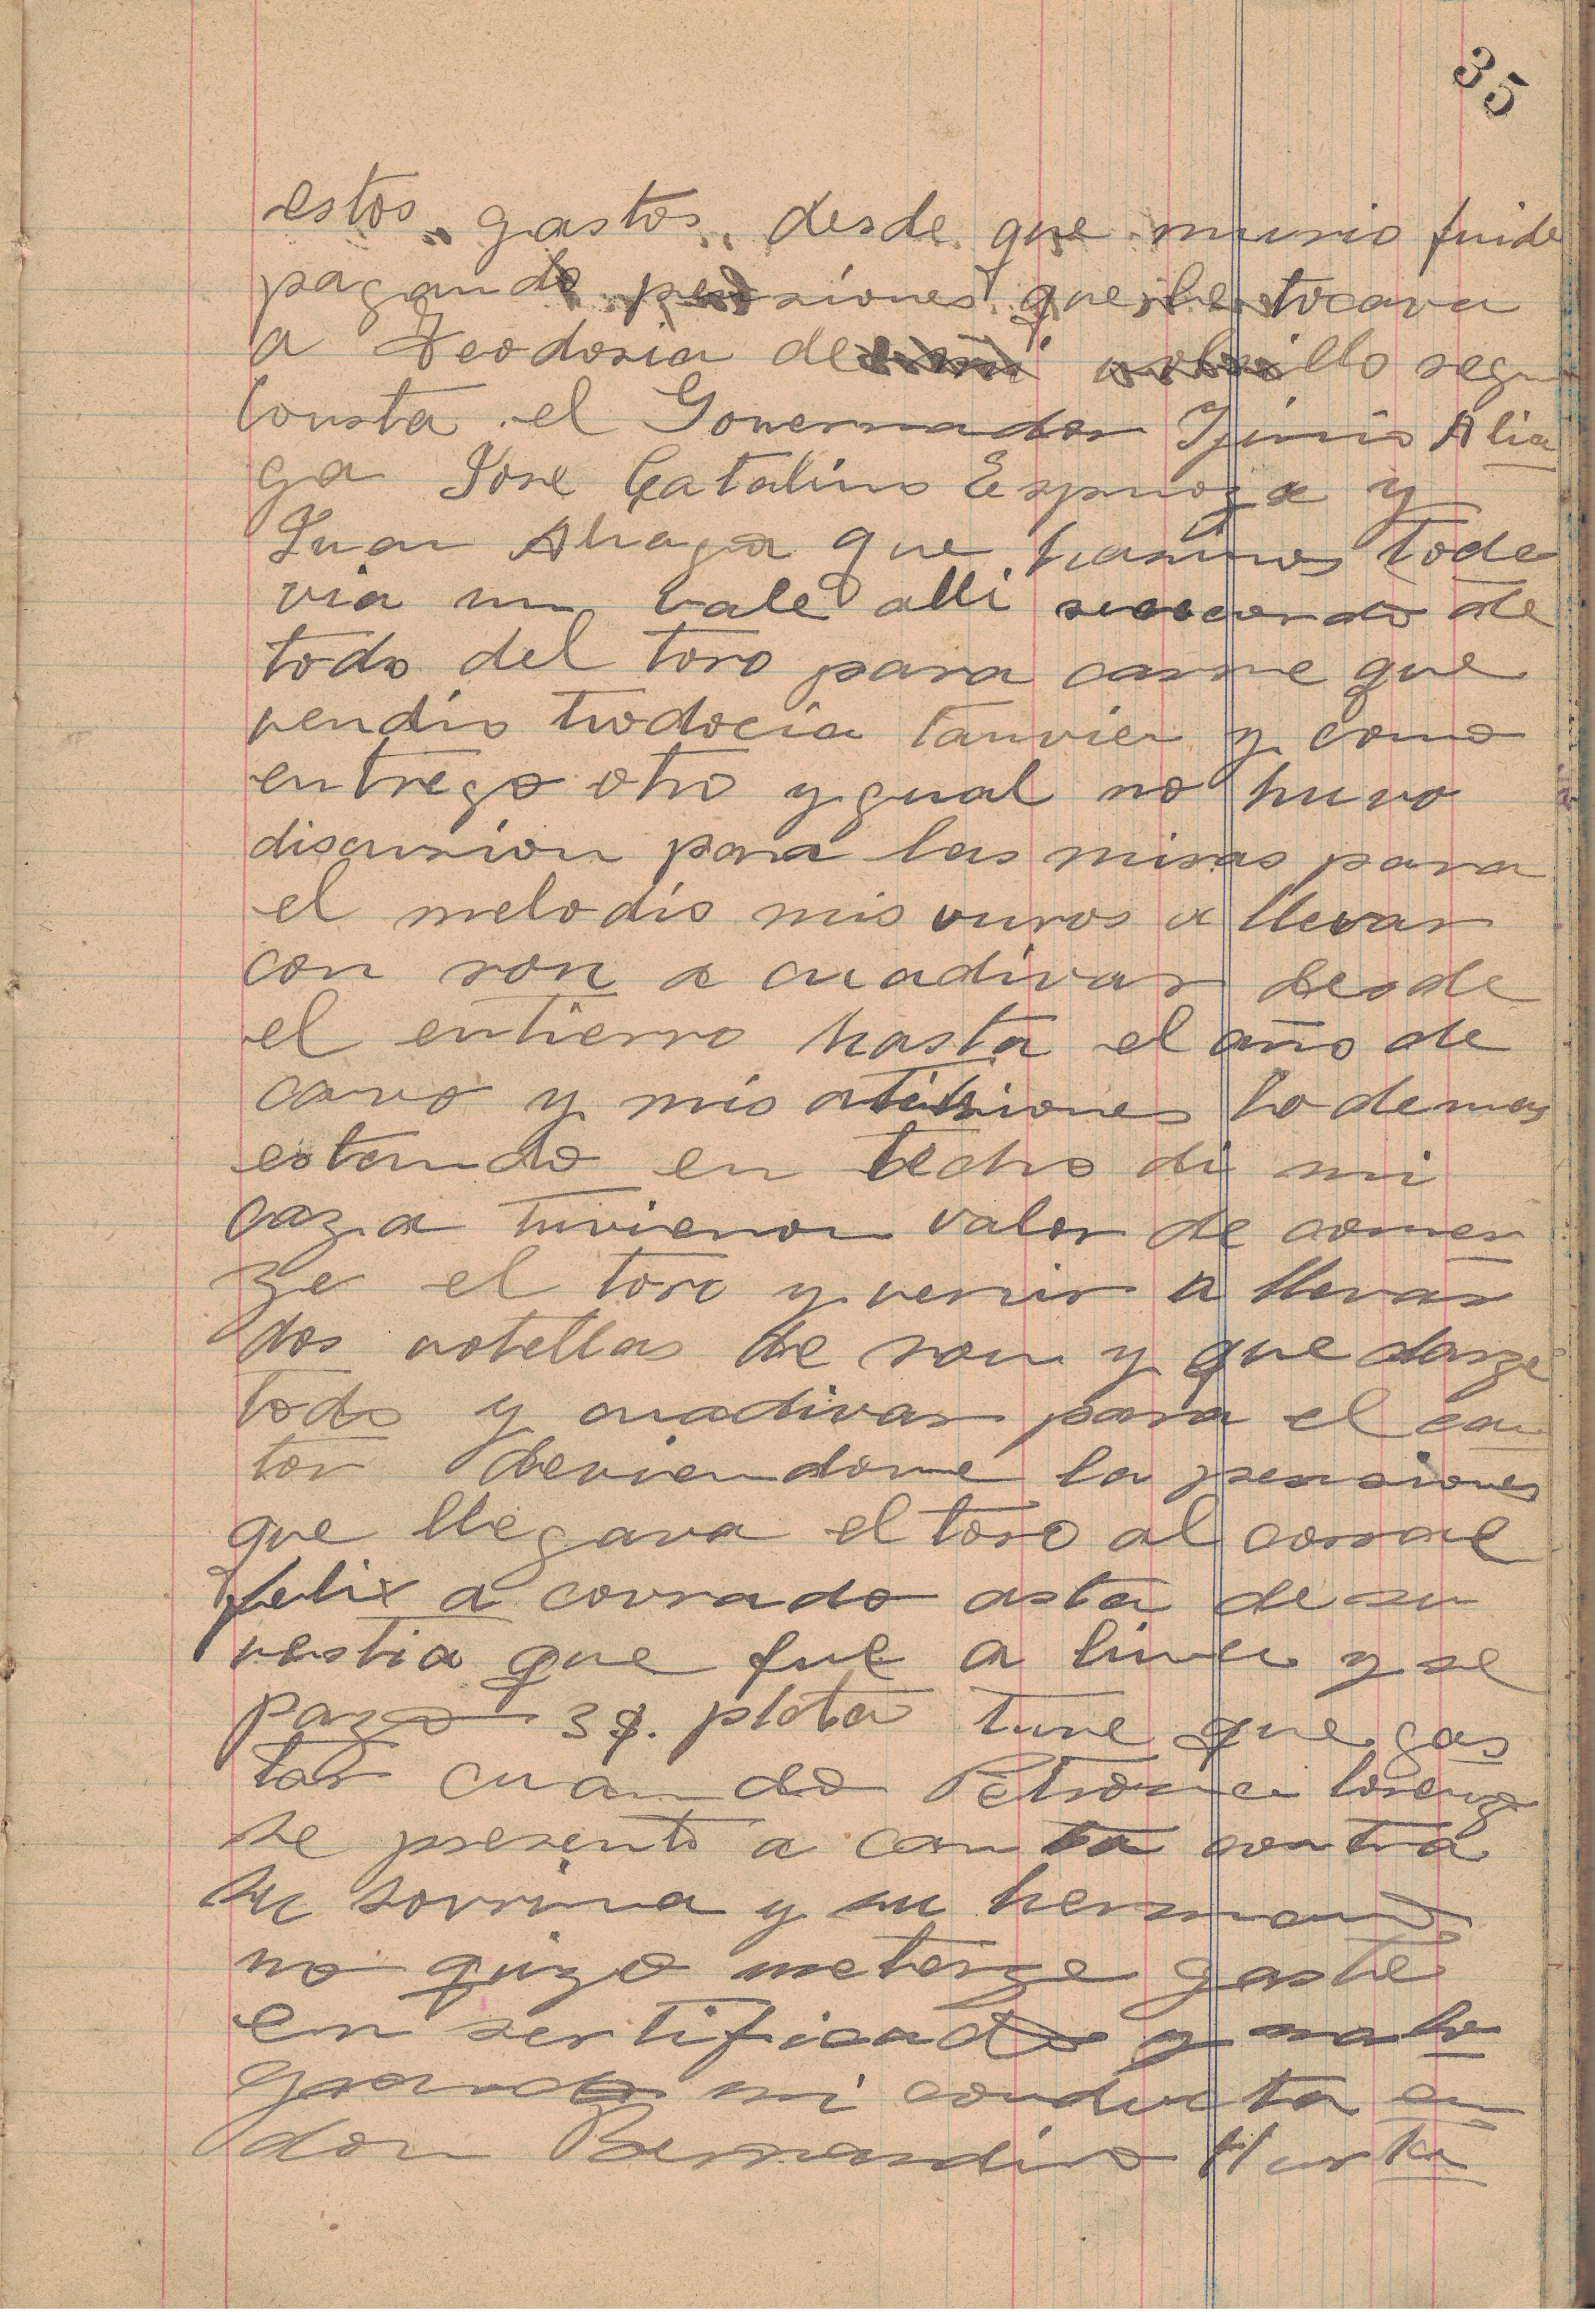 35
estos gastos desde que murio fuide
pagando pensiones que le tocava
a Teodosia de mi volsillo segun
Consta el Governador Ijinio Alia
ga Jose Catalino Espinoza y
Juan Aliaga que hasimos toda
via un vale alli de
todo del toro para carne que
vendio tiodocia tanvien y como
entrego otro ygual no huvo
discusion para las misas para
el melodio mis vuros a llevar
con ron a cuadivar desde
el entierro hasta el año de
cavo y mis atensiones lo demas
estando en techo di mi
caza tuvieron valor de comer
ze el toro y venir a llevar
dos votellas de ron y quedarze
todo y cuadivar para el can
tor deviendome la pensiones
que llegava el toro al corral
felix a covrado asta de su
vestia que fue a lima y se
pazo 3$. plata tuve que gas
tar cuando Petrona lorenz
se presento a canta contra
su sovrina y su hermano
no quizo meterze gaste
en sertificado y malo
grando mi conducta en
don Bernardino Hurta